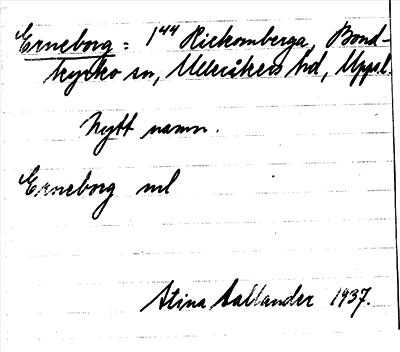 Erneborg = 1⁴⁴ Rickomberga, Bond-
kyrko sn, Ulleråkers hd, Uppsl.
Nytt namn.
Erneborg ml
Stina Aallander 1937.